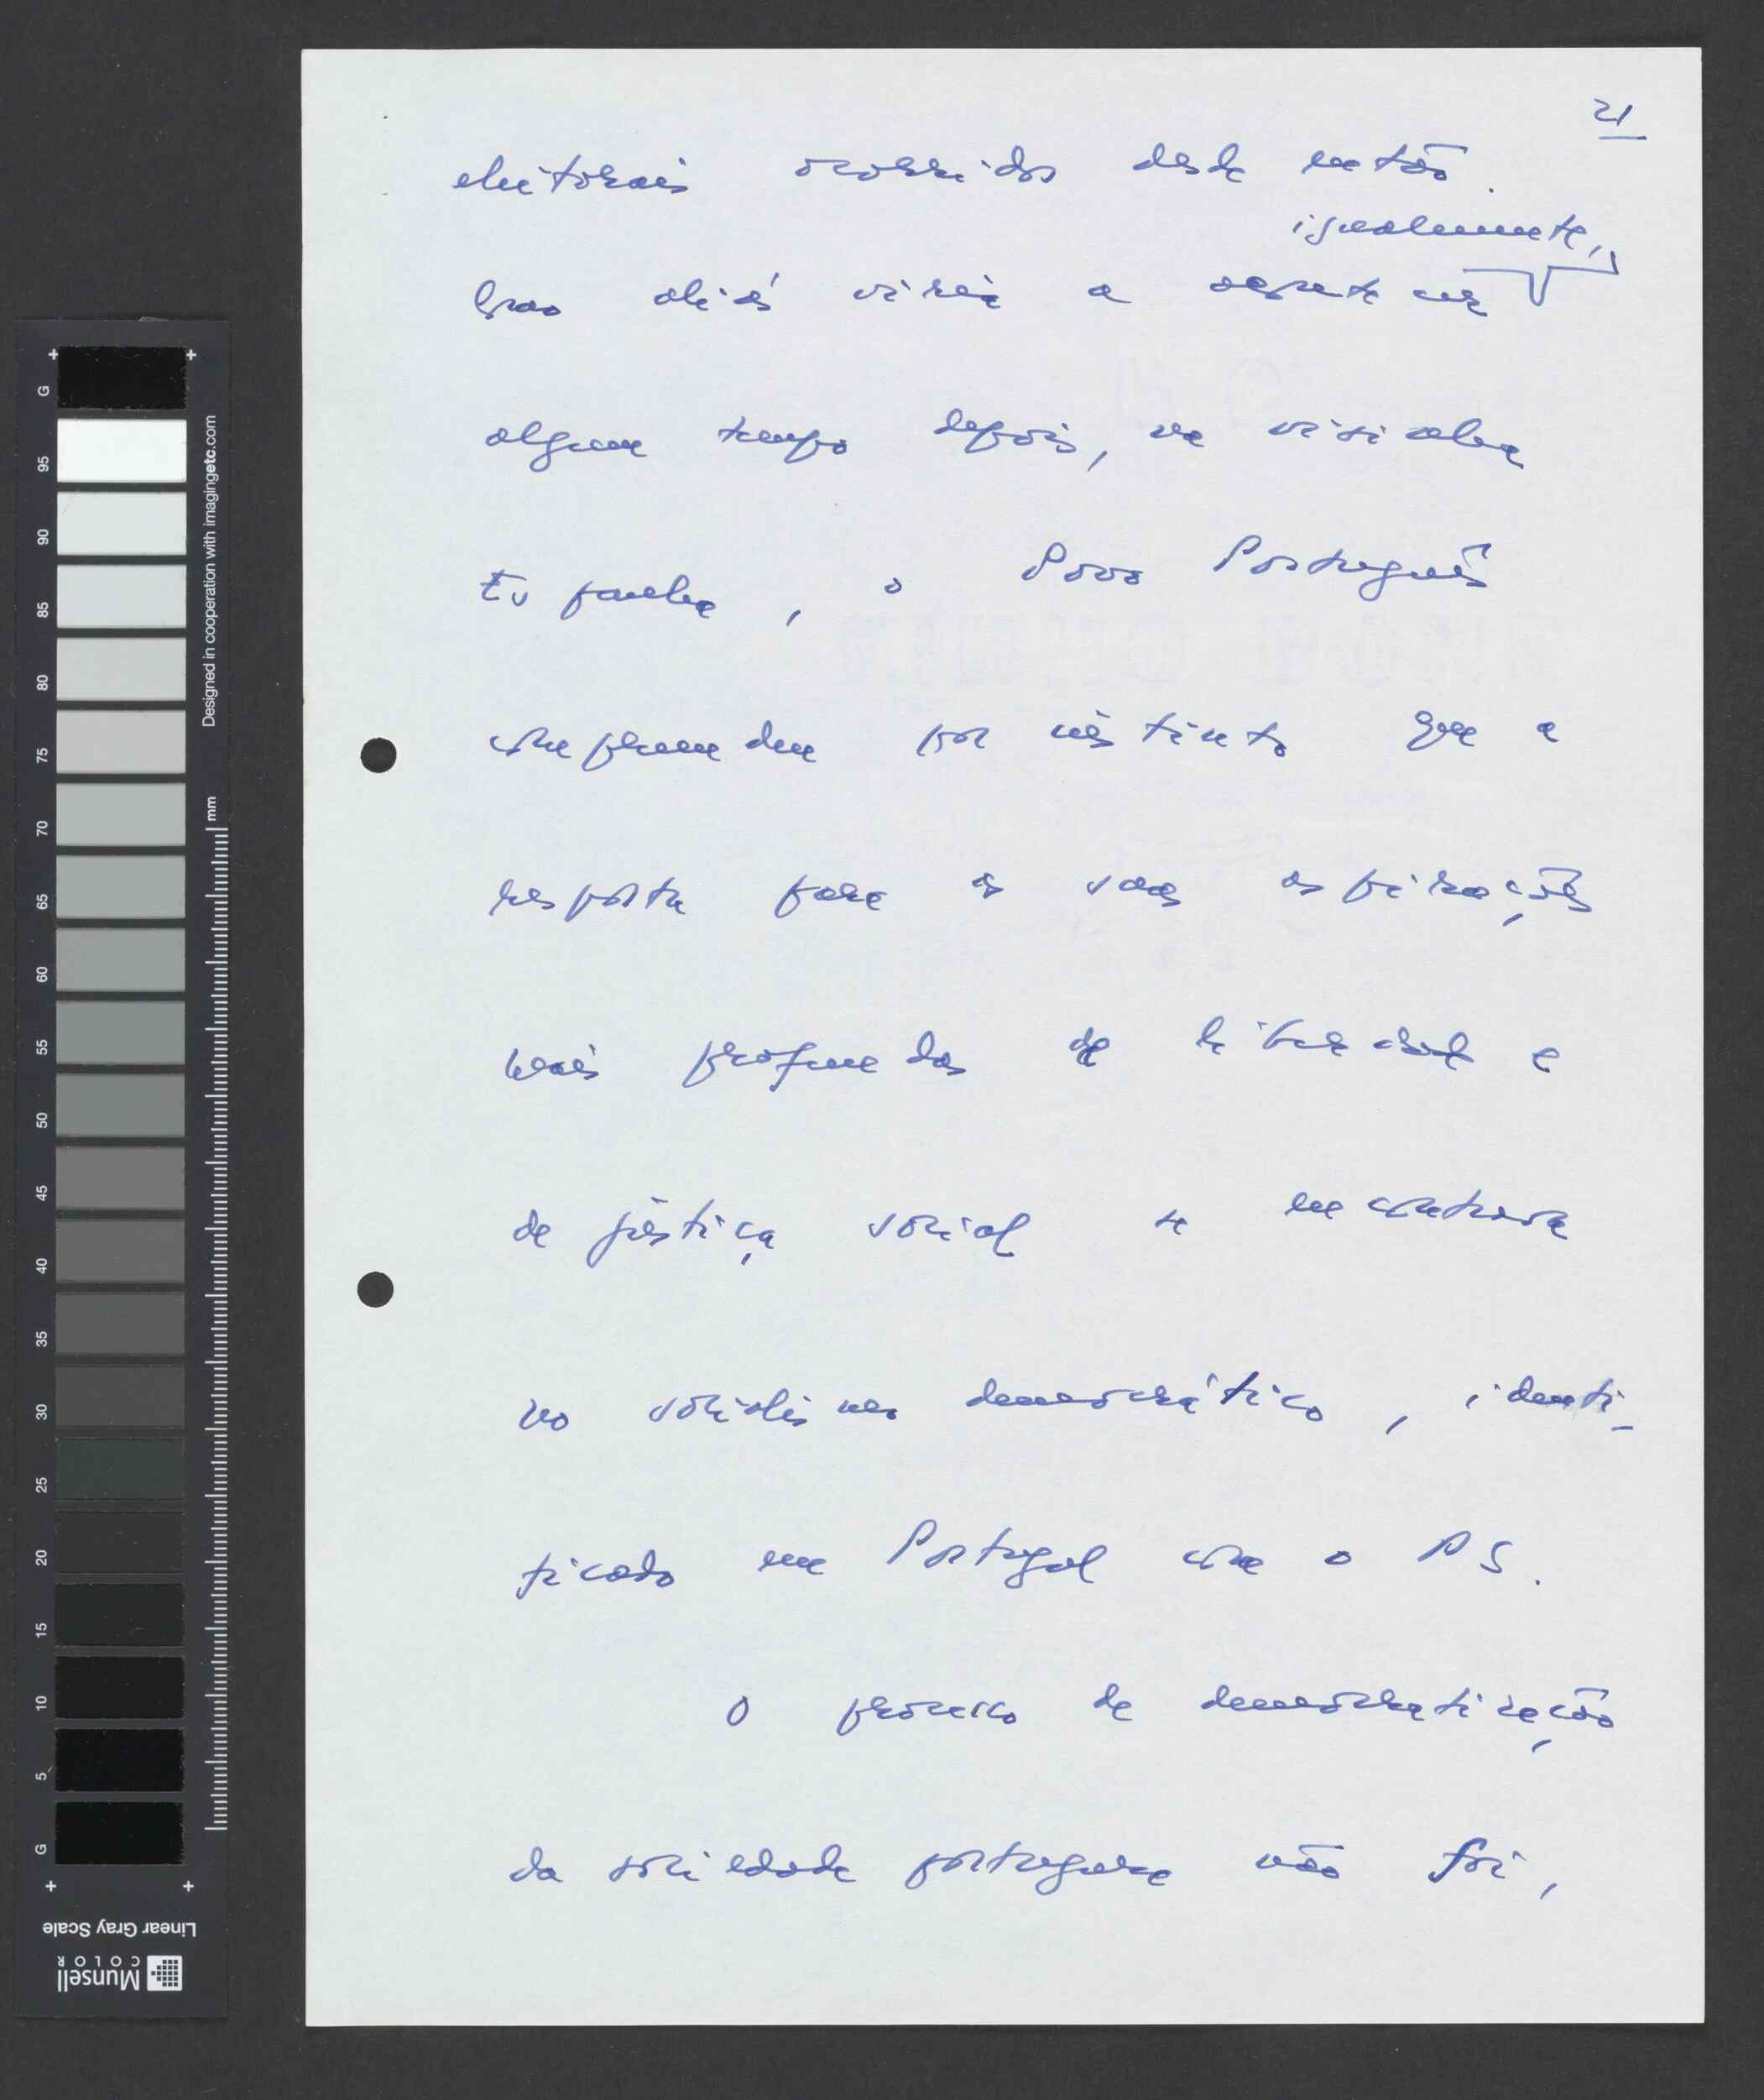 21
eleitorais ocorridos desde então.
igualmente,
Como aliás viria a acontecer
algum tempo depois, na vizinha
Espanha, o Povo Português
compreendeu por instinto que a
resposta para as suas aspirações
mais profundas de liberdade e
de justiça social se encontrava
no socialismo democrático, identi-
ficado em Portugal com o PS.
O processo de democratização
da sociedade portuguesa não foi,
G
95
90
85
80
75
70
65
60
55
50
45
40
35
30
25
20
15
10
5
G
Designed in cooperation with imagingetc.com
mm
Linear Gray Scale
Munsell
COLOR